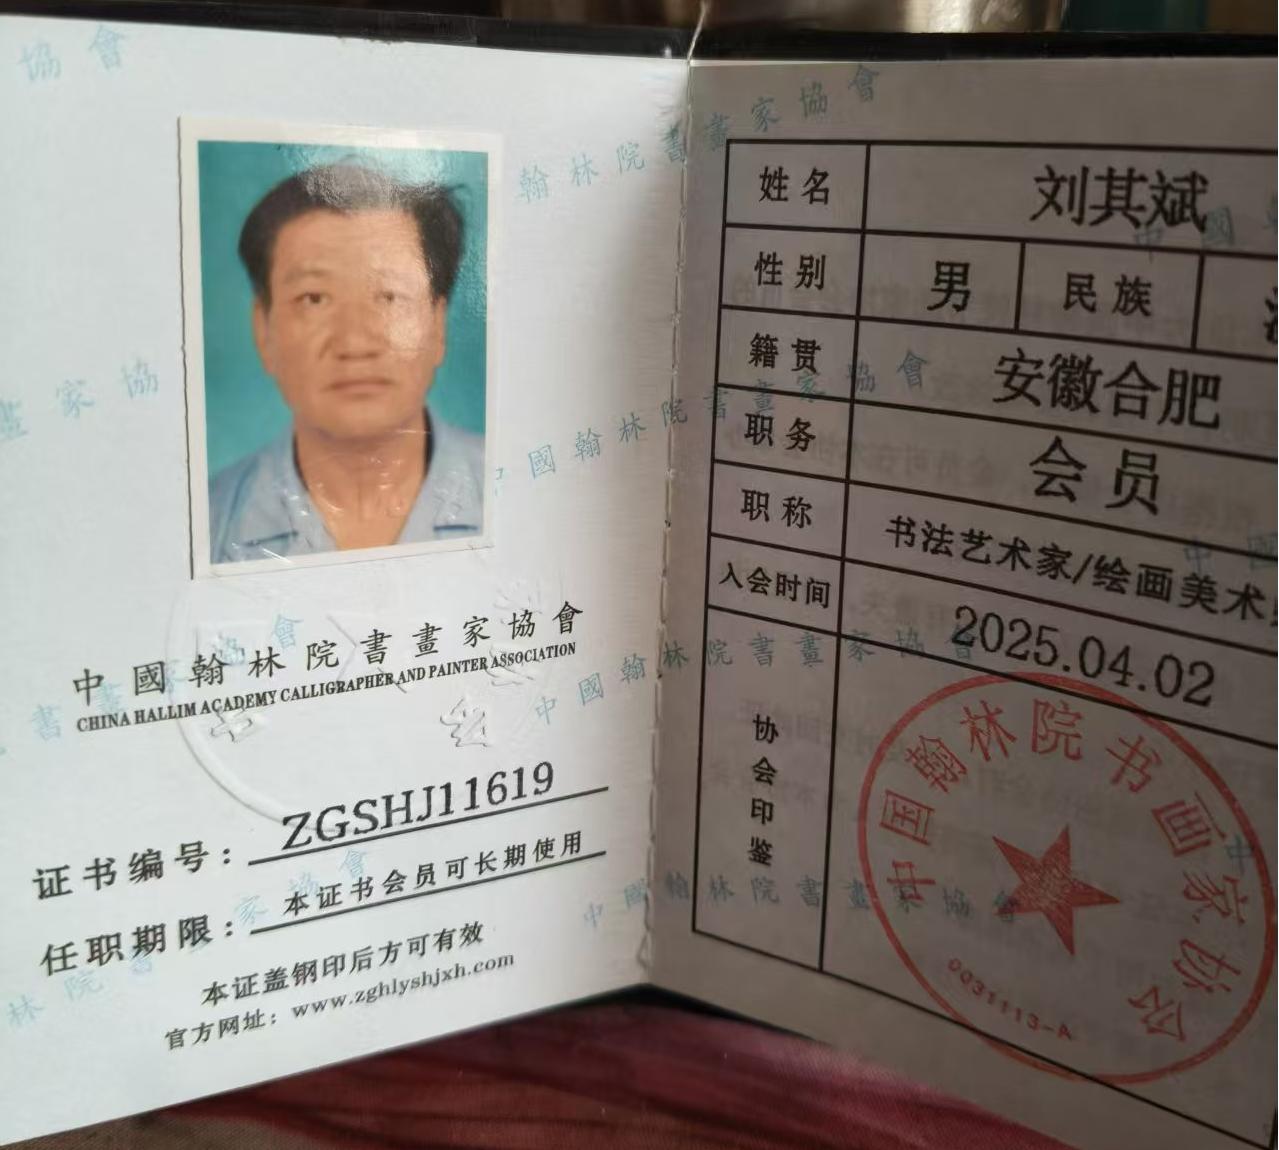 中國翰林院書畫家協會
CHINA HALLIM ACADEMY CALLIGRAPHER AND PAINTER ASSOCIATION
证书编号：ZGSHJ11619
任职期限：本证书会员可长期使用
本证盖钢印后方可有效
官方网址：www.zghlyshjxh.com
姓名 刘其斌
性别 男 民族
籍贯 安徽合肥
职务 会员
职称 书法艺术家/绘画美术
入会时间 2025.04.02
协会印鉴
中国翰林院书画家协会
0031113-A